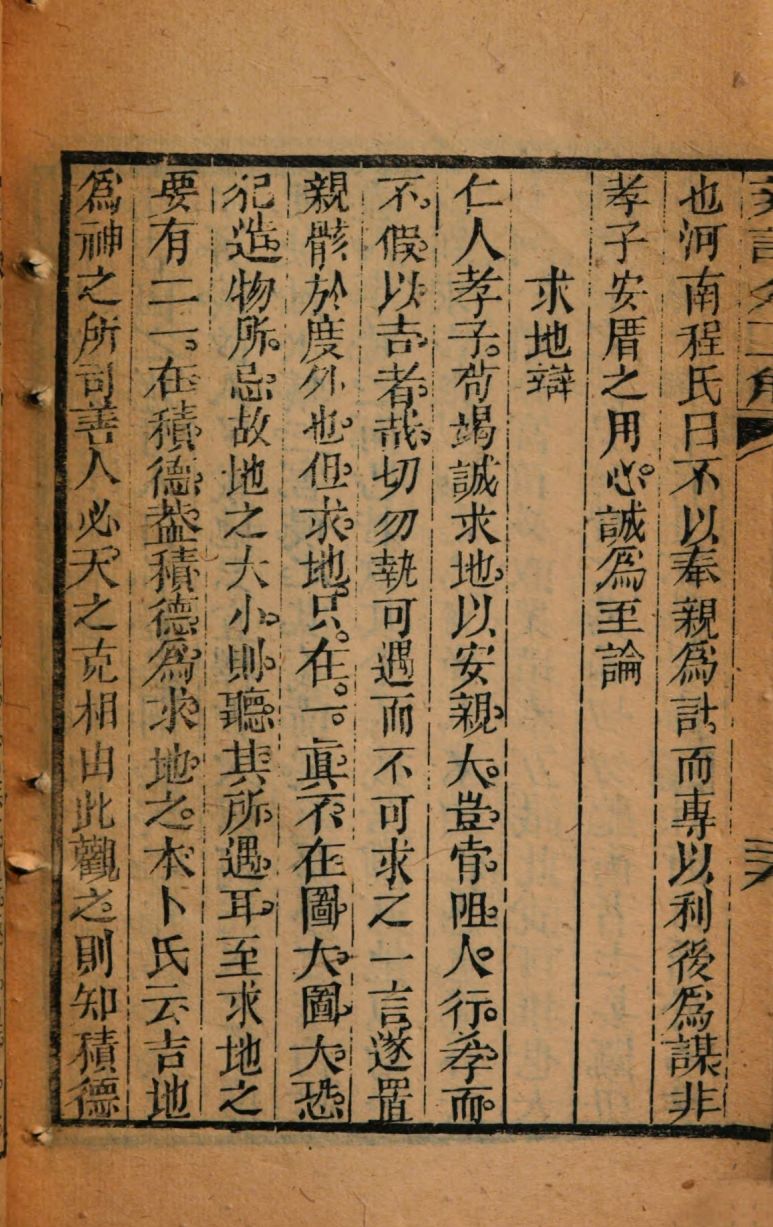 也河南程氏曰不以奉親爲計而專以利後爲謀非
孝子安厝之用心誠爲至論
求地辯
仁人孝子苟竭誠求地以安親大豈肯阻人行孝而
不假以吉者哉切勿執可遇而不可求之一言遂置
親骸於度外也但求地只在一眞不在圖大圖大恐
犯造物所忌故地之大小則聽其所遇耳至求地之
要有二一在積德葢積德爲求地之本卜氏云吉地
爲神之所司善人必天之克相由此觀之則知積德